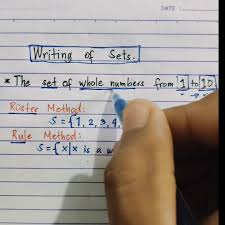 DATE:
Writing of Sets.
* The set of whole numbers from 1 to 10.
Roster Method:
S = {1, 2, 3, 4,
Rule Method:
S = {x|x is a w